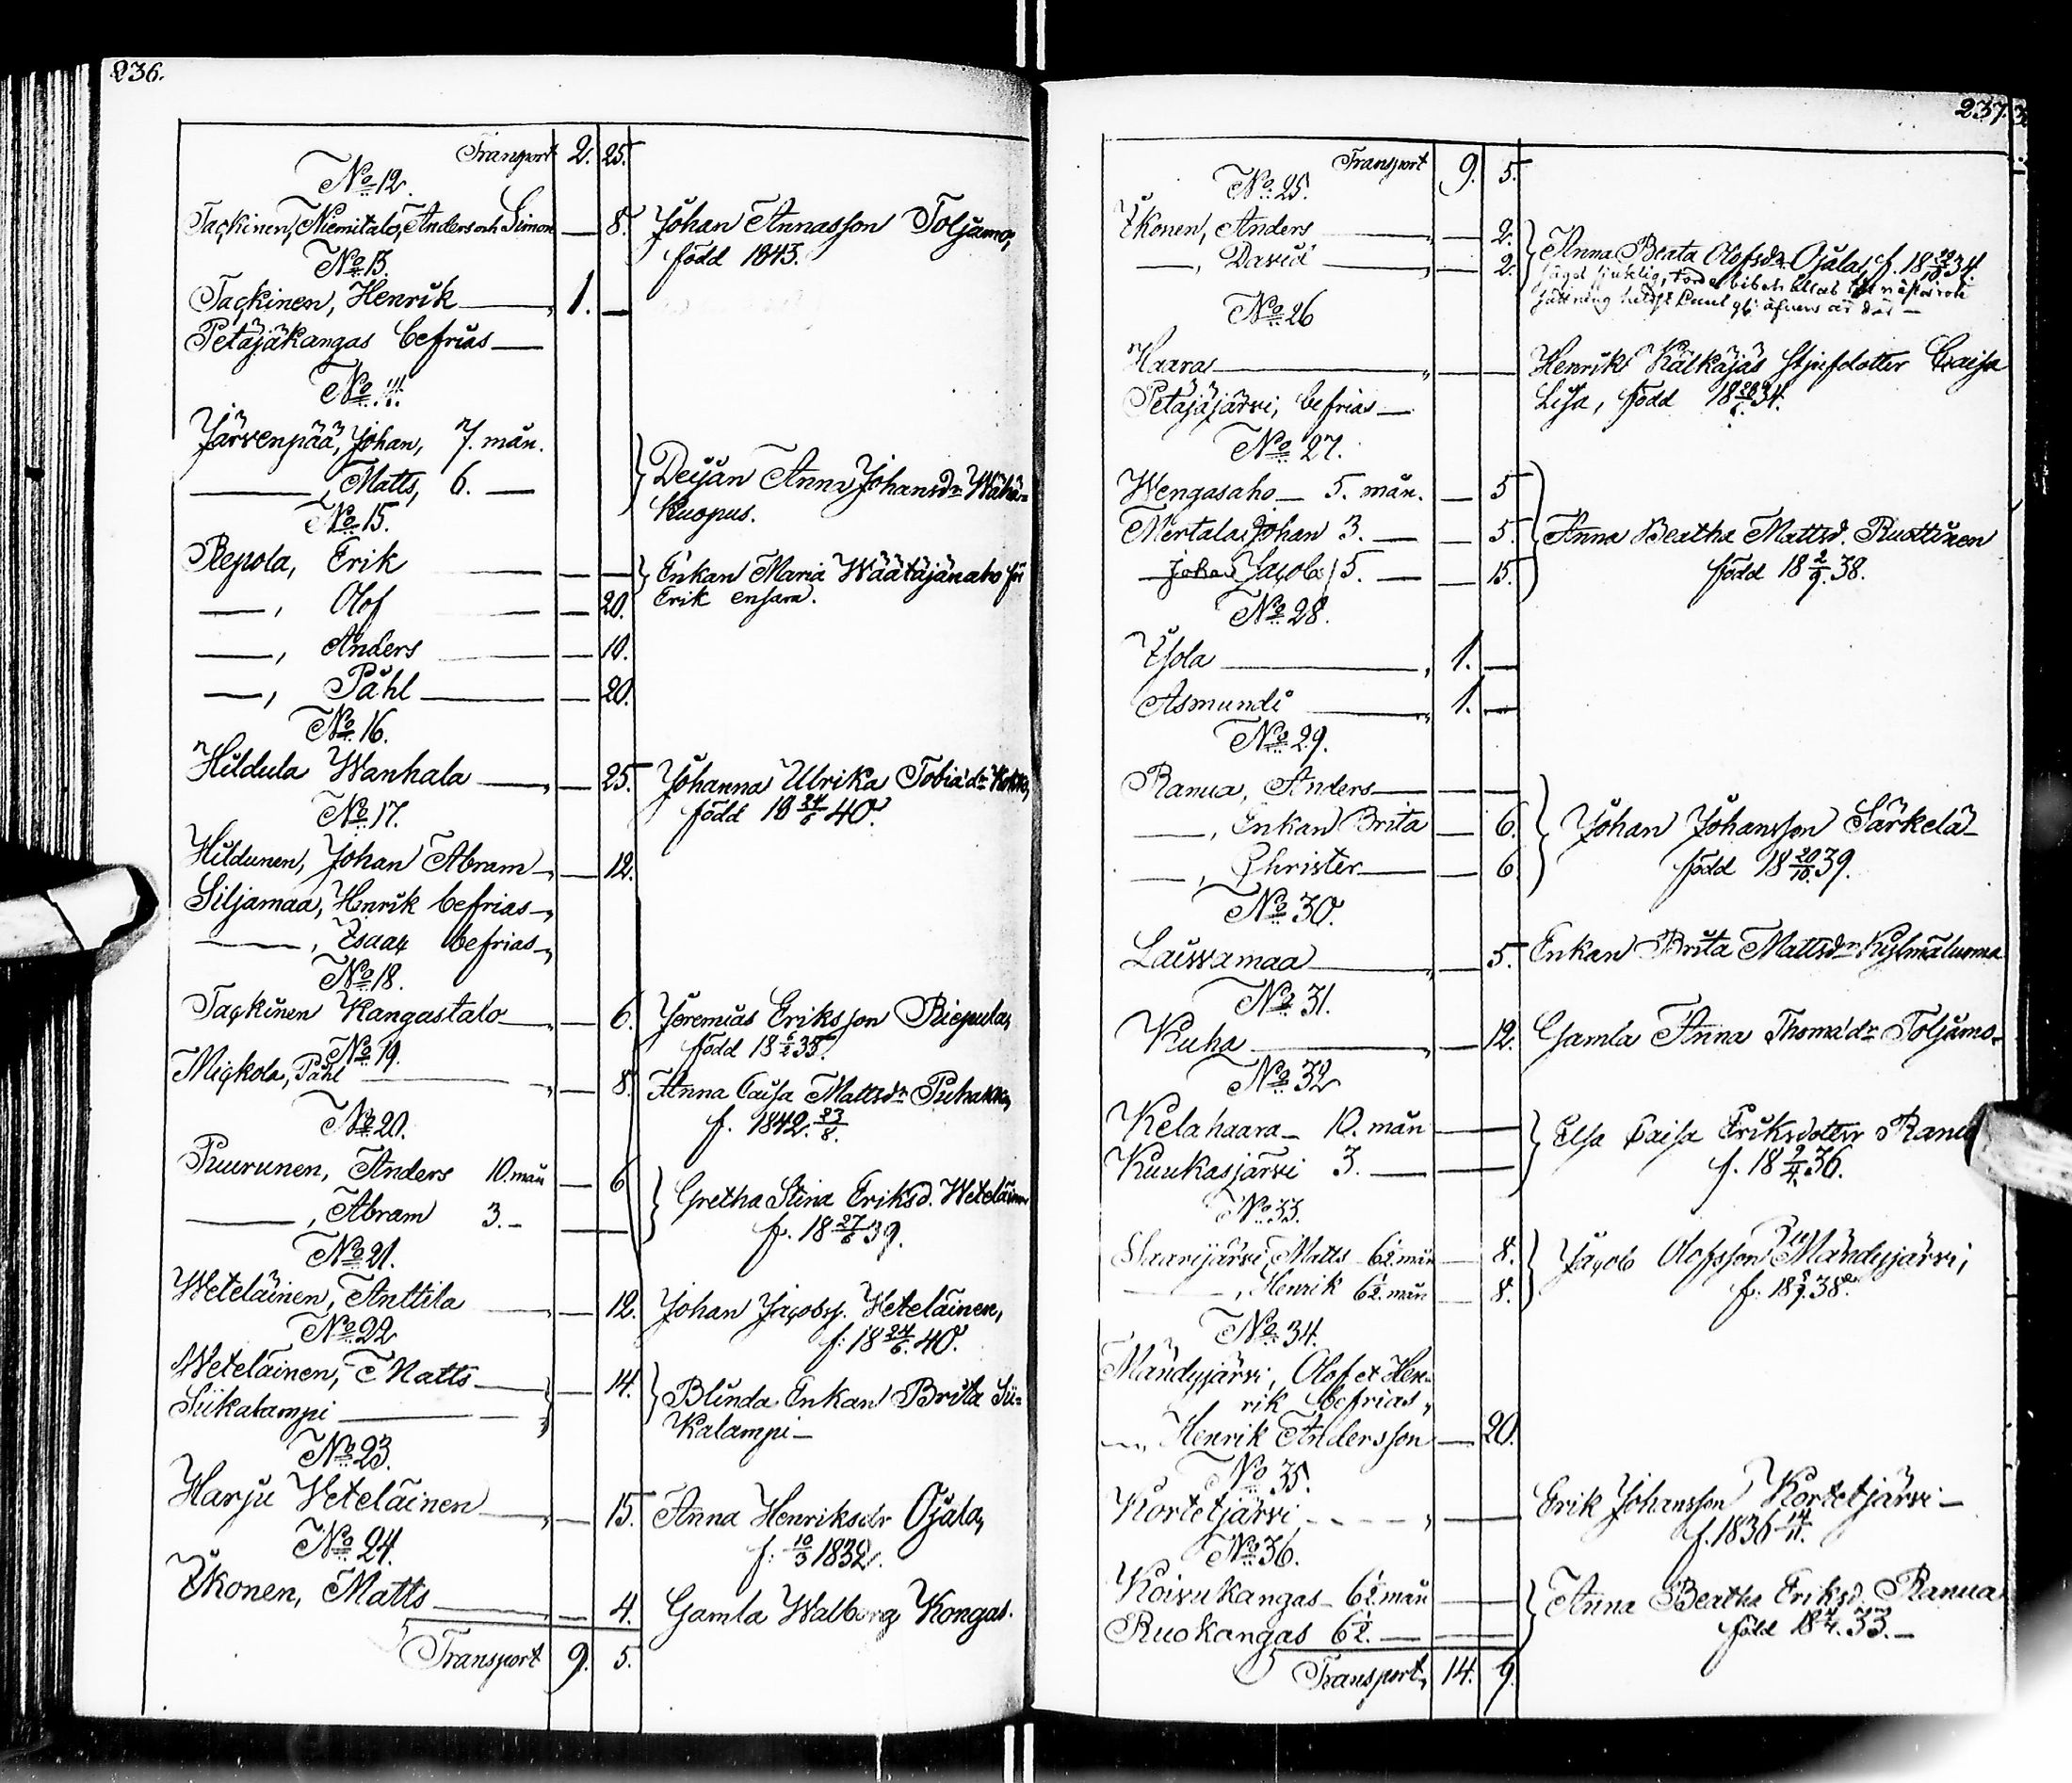 236.
Transport 2. 25.
No 12.
Tackinen, Niemitalo, Anders och Simon — 8. Johan Annasson Toljamo,
född 1843.
No 13.
Tackinen, Henrik — 1. —
Petäjäkangas befrias —
No 14.
Järvenpää, Johan, 7. mån.
—, Matts, 6. —
Deijan Anna Johansdr Wähä-
kuopus.
No 15.
Repola, Erik — — Enkan Maria Wäätäjänaho för
—, Olof — 20. Erik ensam.
—, Anders — 10.
—, Påhl — 20.
No 16.
Hildula Wanhala — 25. Johanna Ulrika Tobiædr Kokko,
född 18 24/6 40.
No 17.
Hildunen, Johan Abram — 12.
Siljamaa, Henrik befrias —
—, Isaac befrias —
No 18.
Tackinen Kangastalo — 6. Jeremias Eriksson Riepula,
född 18 6/2 35.
No 19.
Mickola, Påhl — 8. Anna Caisa Mattsdr Puhakka,
f. 1842. 23/8.
No 20.
Puurunen, Anders 10. mån — 6
—, Abram 3. — —
Gretha Stina Eriksd. Weteläinen
f. 18 27/6 39.
No 21.
Weteläinen, Anttila — 12. Johan Jacobss. Weteläinen,
f: 18 24/6. 40.
No 22
Weteläinen, Matts — 14.
Siikalampi —
Blinda Enkan Brita Sii-
kalampi —
No 23.
Harju Weteläinen — 15. Anna Henriksdr Ojala,
f: 10/3 1832.
No 24.
Ikonen, Matts — 4. Gamla Walborg Kongas.
Transport 9. 5.
237.
Transport 9. 5.
No 25.
Ikonen, Anders — 2.
—, David — 2.
Anna Beata Olofsdr Ojala, f. 18 22/10 34.
No 26
Haara — — Henrik Kälkäjäs Stjufdotter Caisa
Petäjäjärvi, befrias —
Lisa, född
No 27.
Wengasaho — 5. mån. — 5
Mertala, Johan 3. — — 5. Anna Beatha Mattsd. Ruottinen
Johan Jacob 5. — — 15. född 18 2/9. 38.
No 28.
Isola — 1. —
Asmundi — 1. —
No 29.
Ranua, Anders — —
—, Enkan Brita — 6. Johan Johansson Särkelä
—, Christer — 6 född 18 20/10 39.
No 30.
Laiwamaa — 5. Enkan Brita Mattsdr Kylmäluoma
No 31.
Kuha — 12. Gamla Anna Thomædr Toljamo.
No 32
Kelahaara — 10. mån — Elsa Caisa Eriksdotter Ranua
Kuukasjärvi 3. — — f. 18 9/4. 36.
No 33.
Saarijärvi, Matts 6½ mån — 8. Jacob Olofsson Mändyjärvi,
—, Henrik 6½. mån — 8.
No 34.
Mändyjärvi, Olof et Hen-
rik befrias,
—, Henrik Andersson — 20.
No 35.
Kortetjärvi — — Erik Johansson Kortetjärvi —
f. 1836 14/11.
No 36.
Koivukangas — 6½ mån —
Ruokangas 6½. — —
Anna Beatha Eriksd. Ranua
född 18 33. —
Transport, 14. 9.